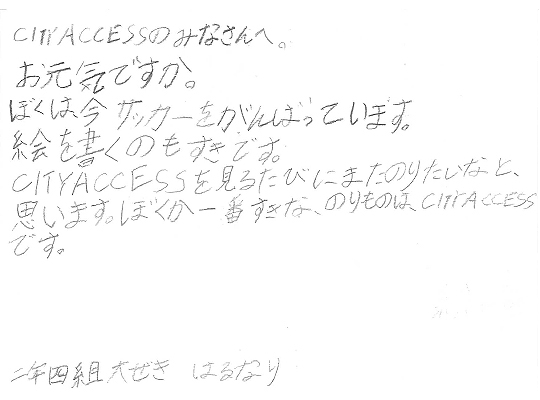 CITYACCESSのみなさんへ。
お元気ですか。
ぼくは、今サッカーをがんばっています。
絵を書くのもすきです。
CITYACCESSを見るたびにまたのりたいなと、
思います。ぼくが一番すきな、のりものは、CITYACCESS
です。
二年四組大ぜき はるなり